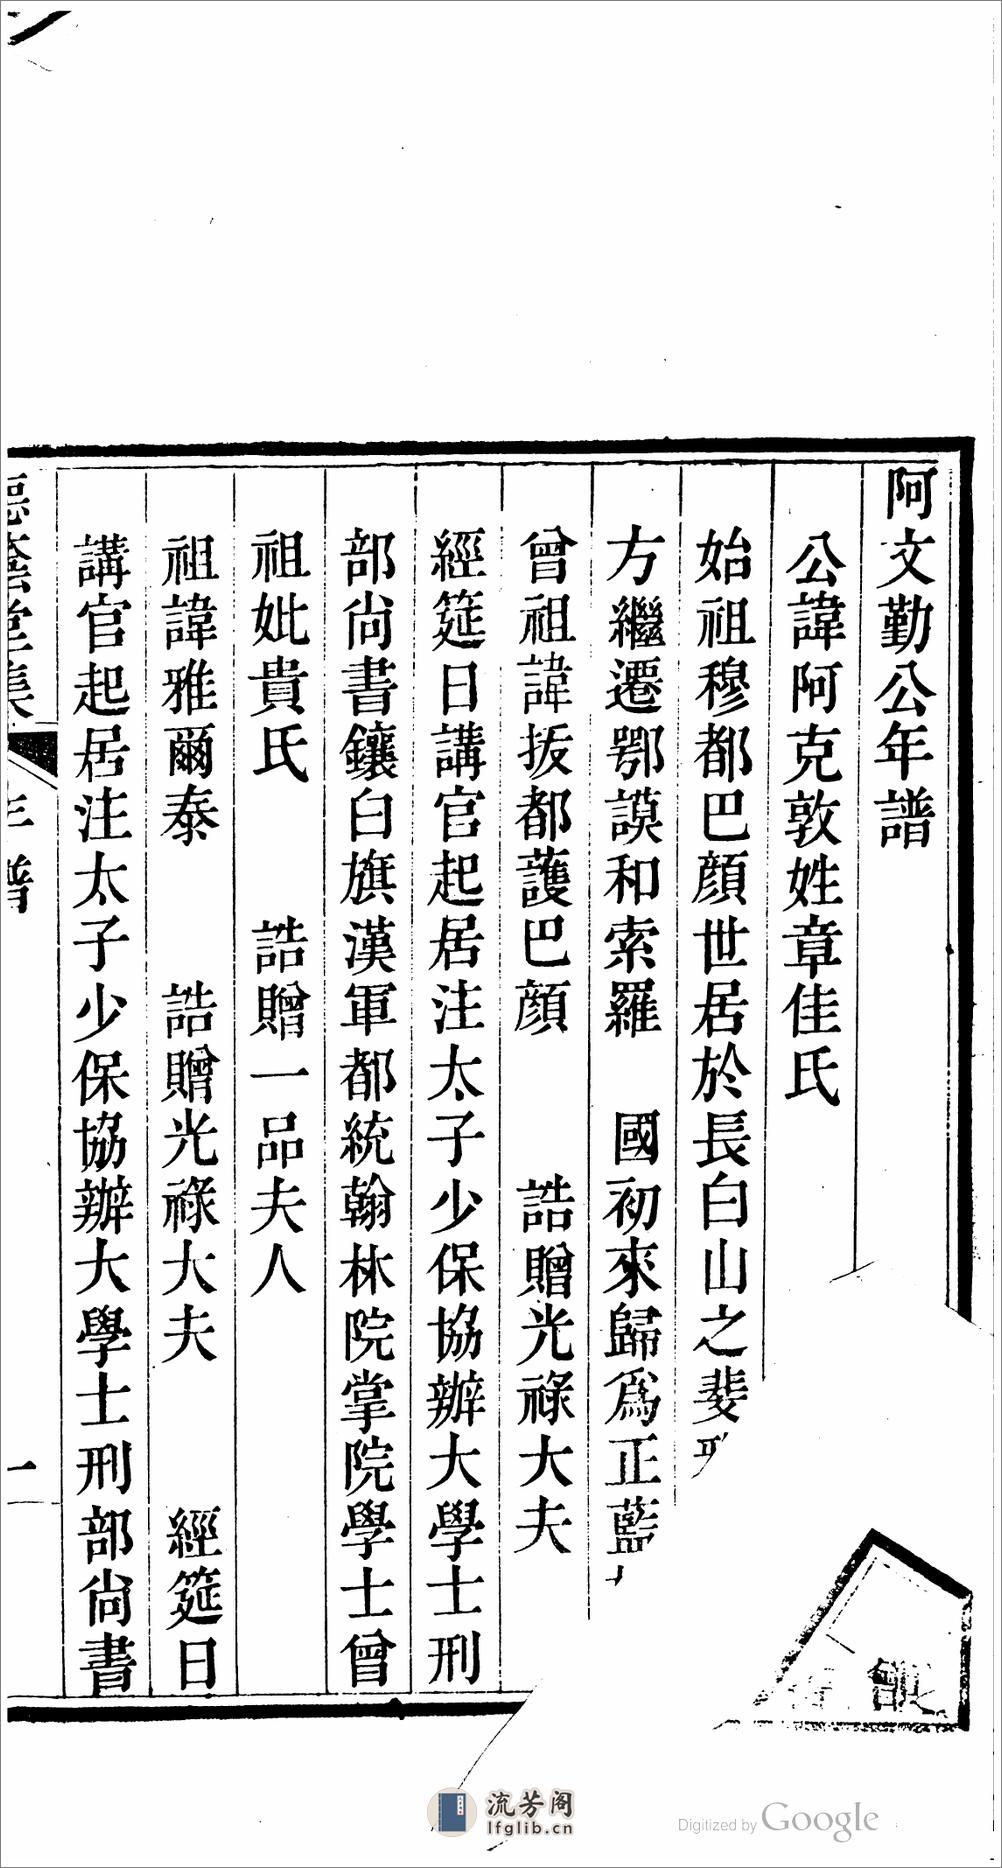 阿文勤公年譜
公諱阿克敦姓章佳氏
始祖穆都巴顏世居於長白山之斐
方繼遷鄂謨和索羅 國初來歸爲正藍
曾祖諱拔都護巴顏 誥贈光祿大夫
經筵日講官起居注太子少保協辦大學士刑
部尚書鑲白旗漢軍都統翰林院掌院學士曾
祖妣貴氏 誥贈一品夫人
祖諱雅爾泰 誥贈光祿大夫 經筵日
講官起居注太子少保協辦大學士刑部尚書
德蔭堂集 年譜 一
流芳阁
lfglib.cn
Digitized by Google